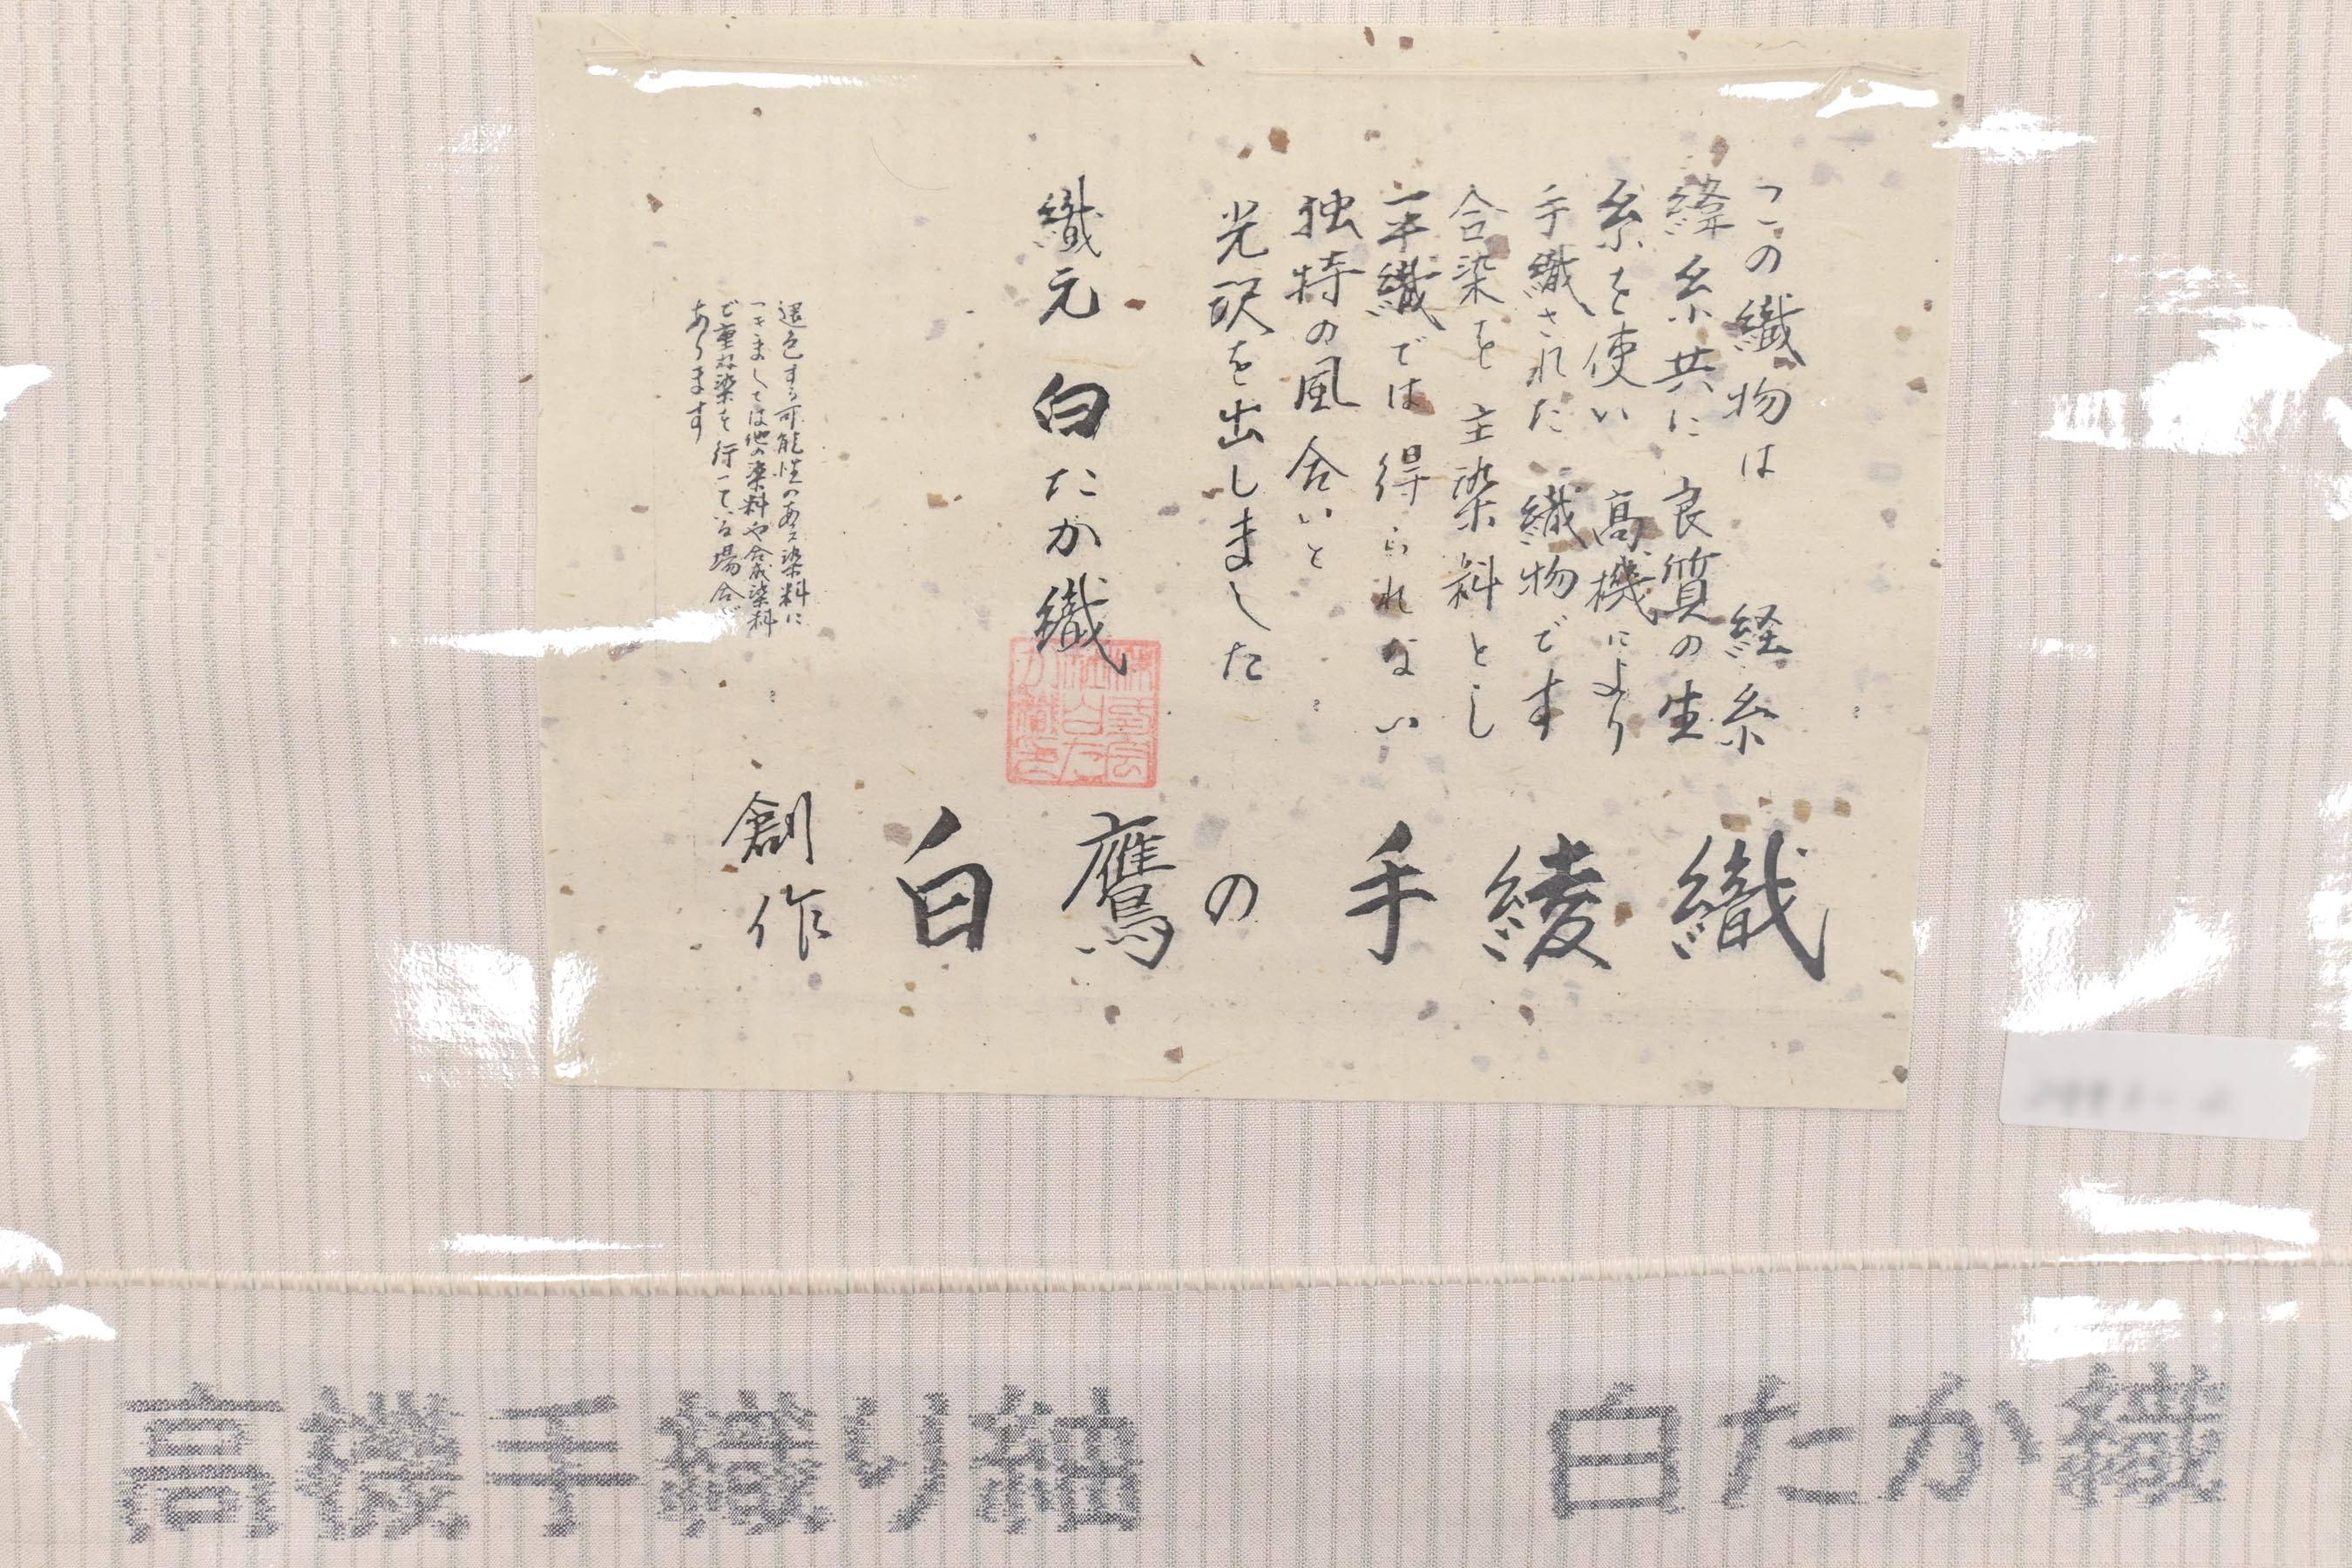 この織物は 経糸
緯糸共に 良質の生
糸を使い 高機により
手織された 織物です
合染を 主染料とし
平織では 得られない
独特の風合いと
光沢を出しました
織元 白たか織
退色する可能性のある染料に
つきましては他の染料や合成染料
で重ね染を行っている場合が
あります
創作 白鷹の 手綾織
高機手織り紬 白たか織